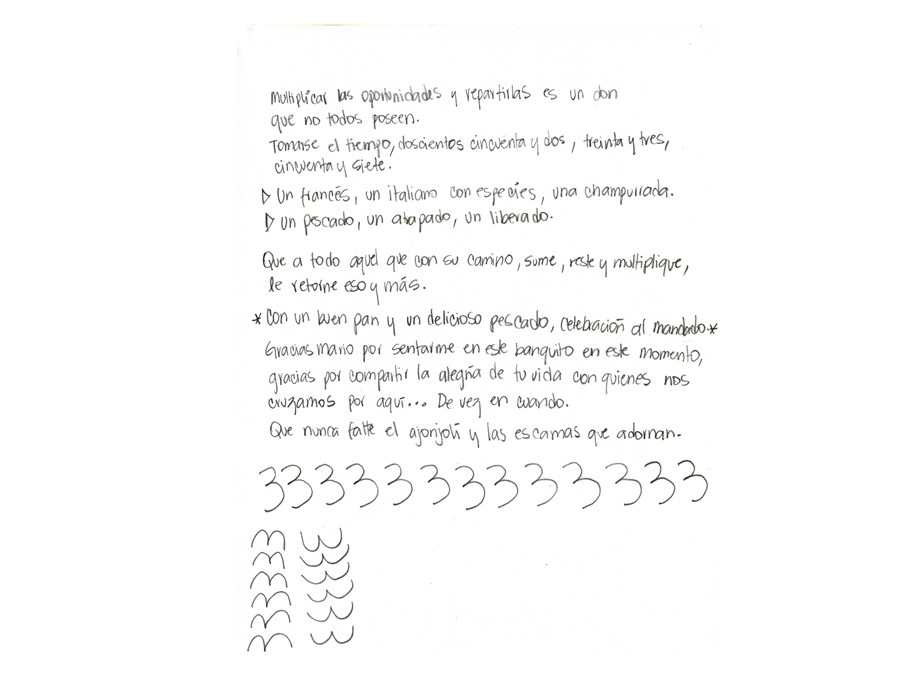 Multiplicar las oportunidades y repartirlas es un don
que no todos poseen.
Tomarse el tiempo, doscientos cincuenta y dos, treinta y tres,
cincuenta y siete.
▷ Un francés, un italiano con especies, una champurrada.
▷ Un pescado, un atapado, un liberado.
Que a todo aquel que con su camino, sume, reste y multiplique,
le retorne eso y más.
*Con un buen pan y un delicioso pescado, celebración al mandado*
Gracias Mario por sentarme en este banquito en este momento,
gracias por compartir la alegría de tu vida con quienes nos
cruzamos por aquí... De vez en cuando.
Que nunca falte el ajonjolí y las escamas que adornan.
33333333333333